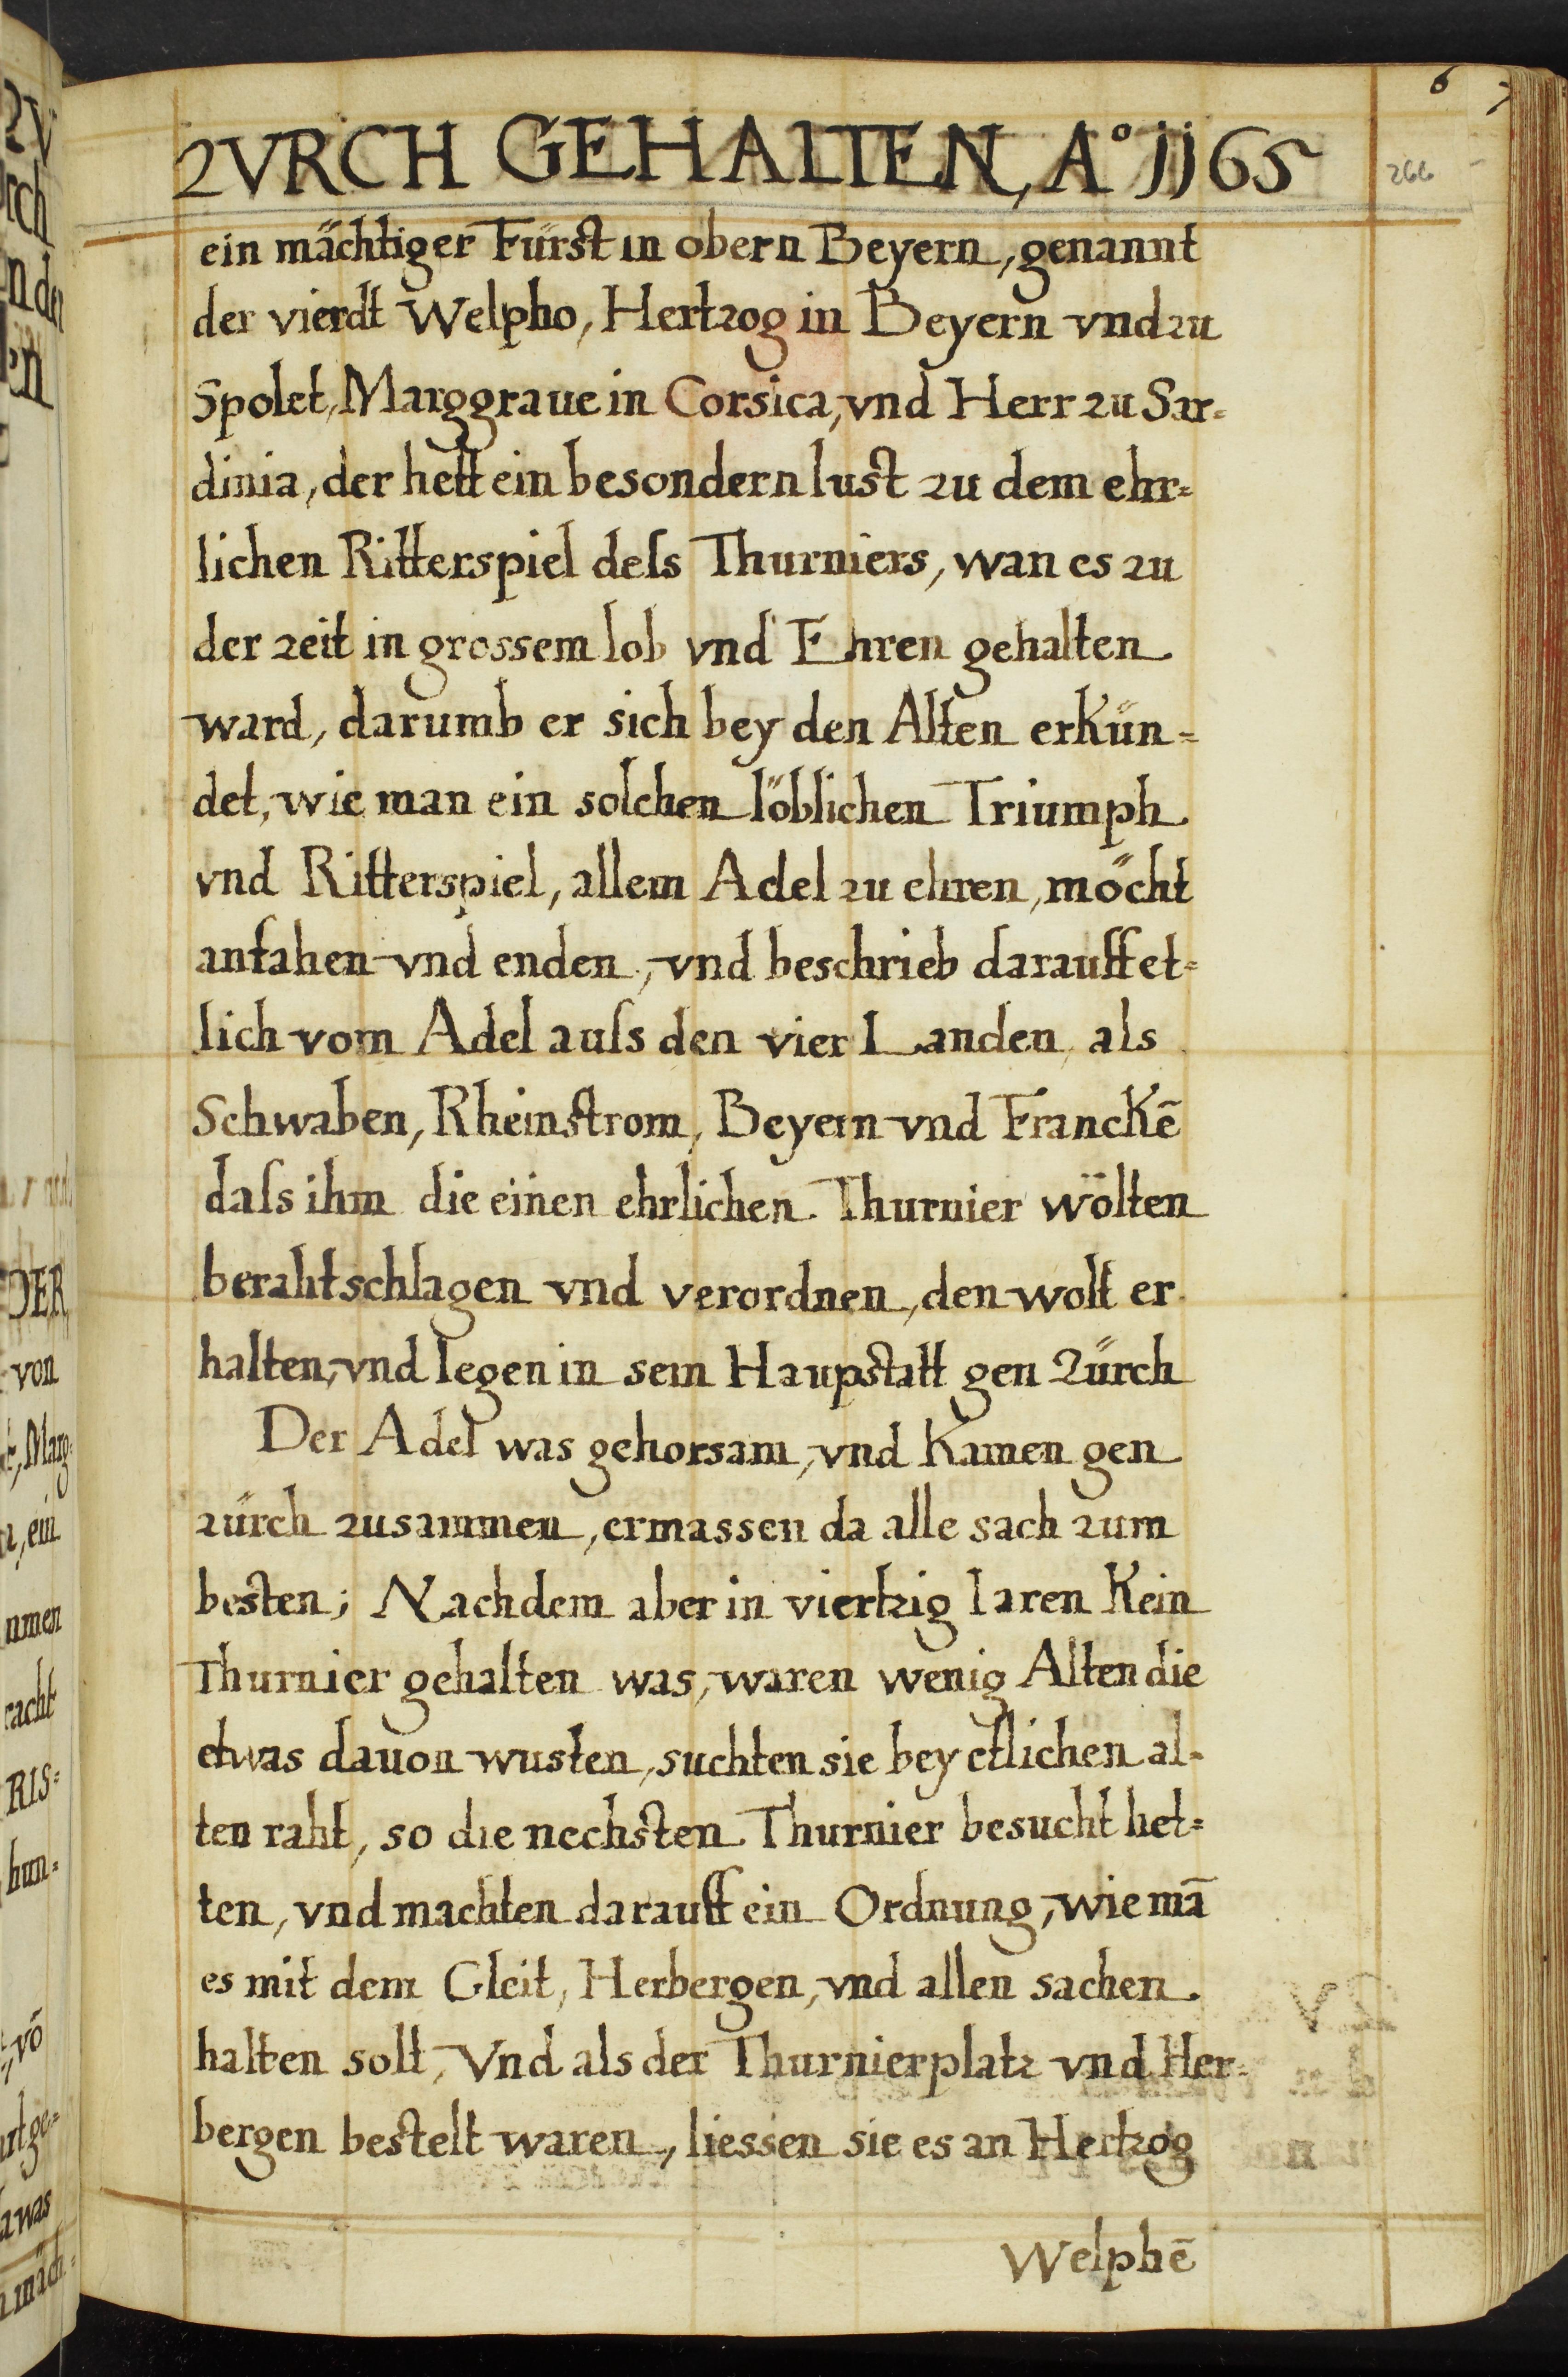 ZVRCH GEHALTEN, A° jj65
266
ein mächtiger Fürst in obern Beyern, genannt
der vierdt Welpho, Hertzog in Beyern vnd zu
Spolet, Marggraue in Corsica, vnd Herr zu Sar=
dinia, der hett ein besondern lust zu dem ehr=
lichen Ritterspiel deſs Thurniers, wan es zu
der zeit in grossem lob vnd Ehren gehalten
ward, darumb er sich bey den Alten erkün=
det, wie man ein solchen löblichen Triumph
vnd Ritterspiel, allem Adel zu ehren, möcht
anfahen vnd enden, vnd beschrieb darauff et=
lich vom Adel auſs den vier Landen, als
Schwaben, Rheinstrom, Beyern vnd Franckē
daſs ihm die einen ehrlichen Thurnier wölten
berahtschlagen vnd verordnen, den wolt er
halten, vnd legen in sein Haupstatt gen Zürch
Der Adel was gehorsam, vnd kamen gen
zürch zusammen, ermassen da alle sach zum
besten; Nachdem aber in viertzig Iaren kein
Thurnier gehalten was, waren wenig Alten die
etwas dauon wusten, suchten sie bey etlichen al=
ten raht, so die nechsten Thurnier besucht het=
ten, vnd machten darauff ein Ordnung, wie mā
es mit dem Gleit, Herbergen, vnd allen sachen
halten solt, Vnd als der Thurnierplatz vnd Her=
bergen bestelt waren, liessen sie es an Hertzog
Welphē